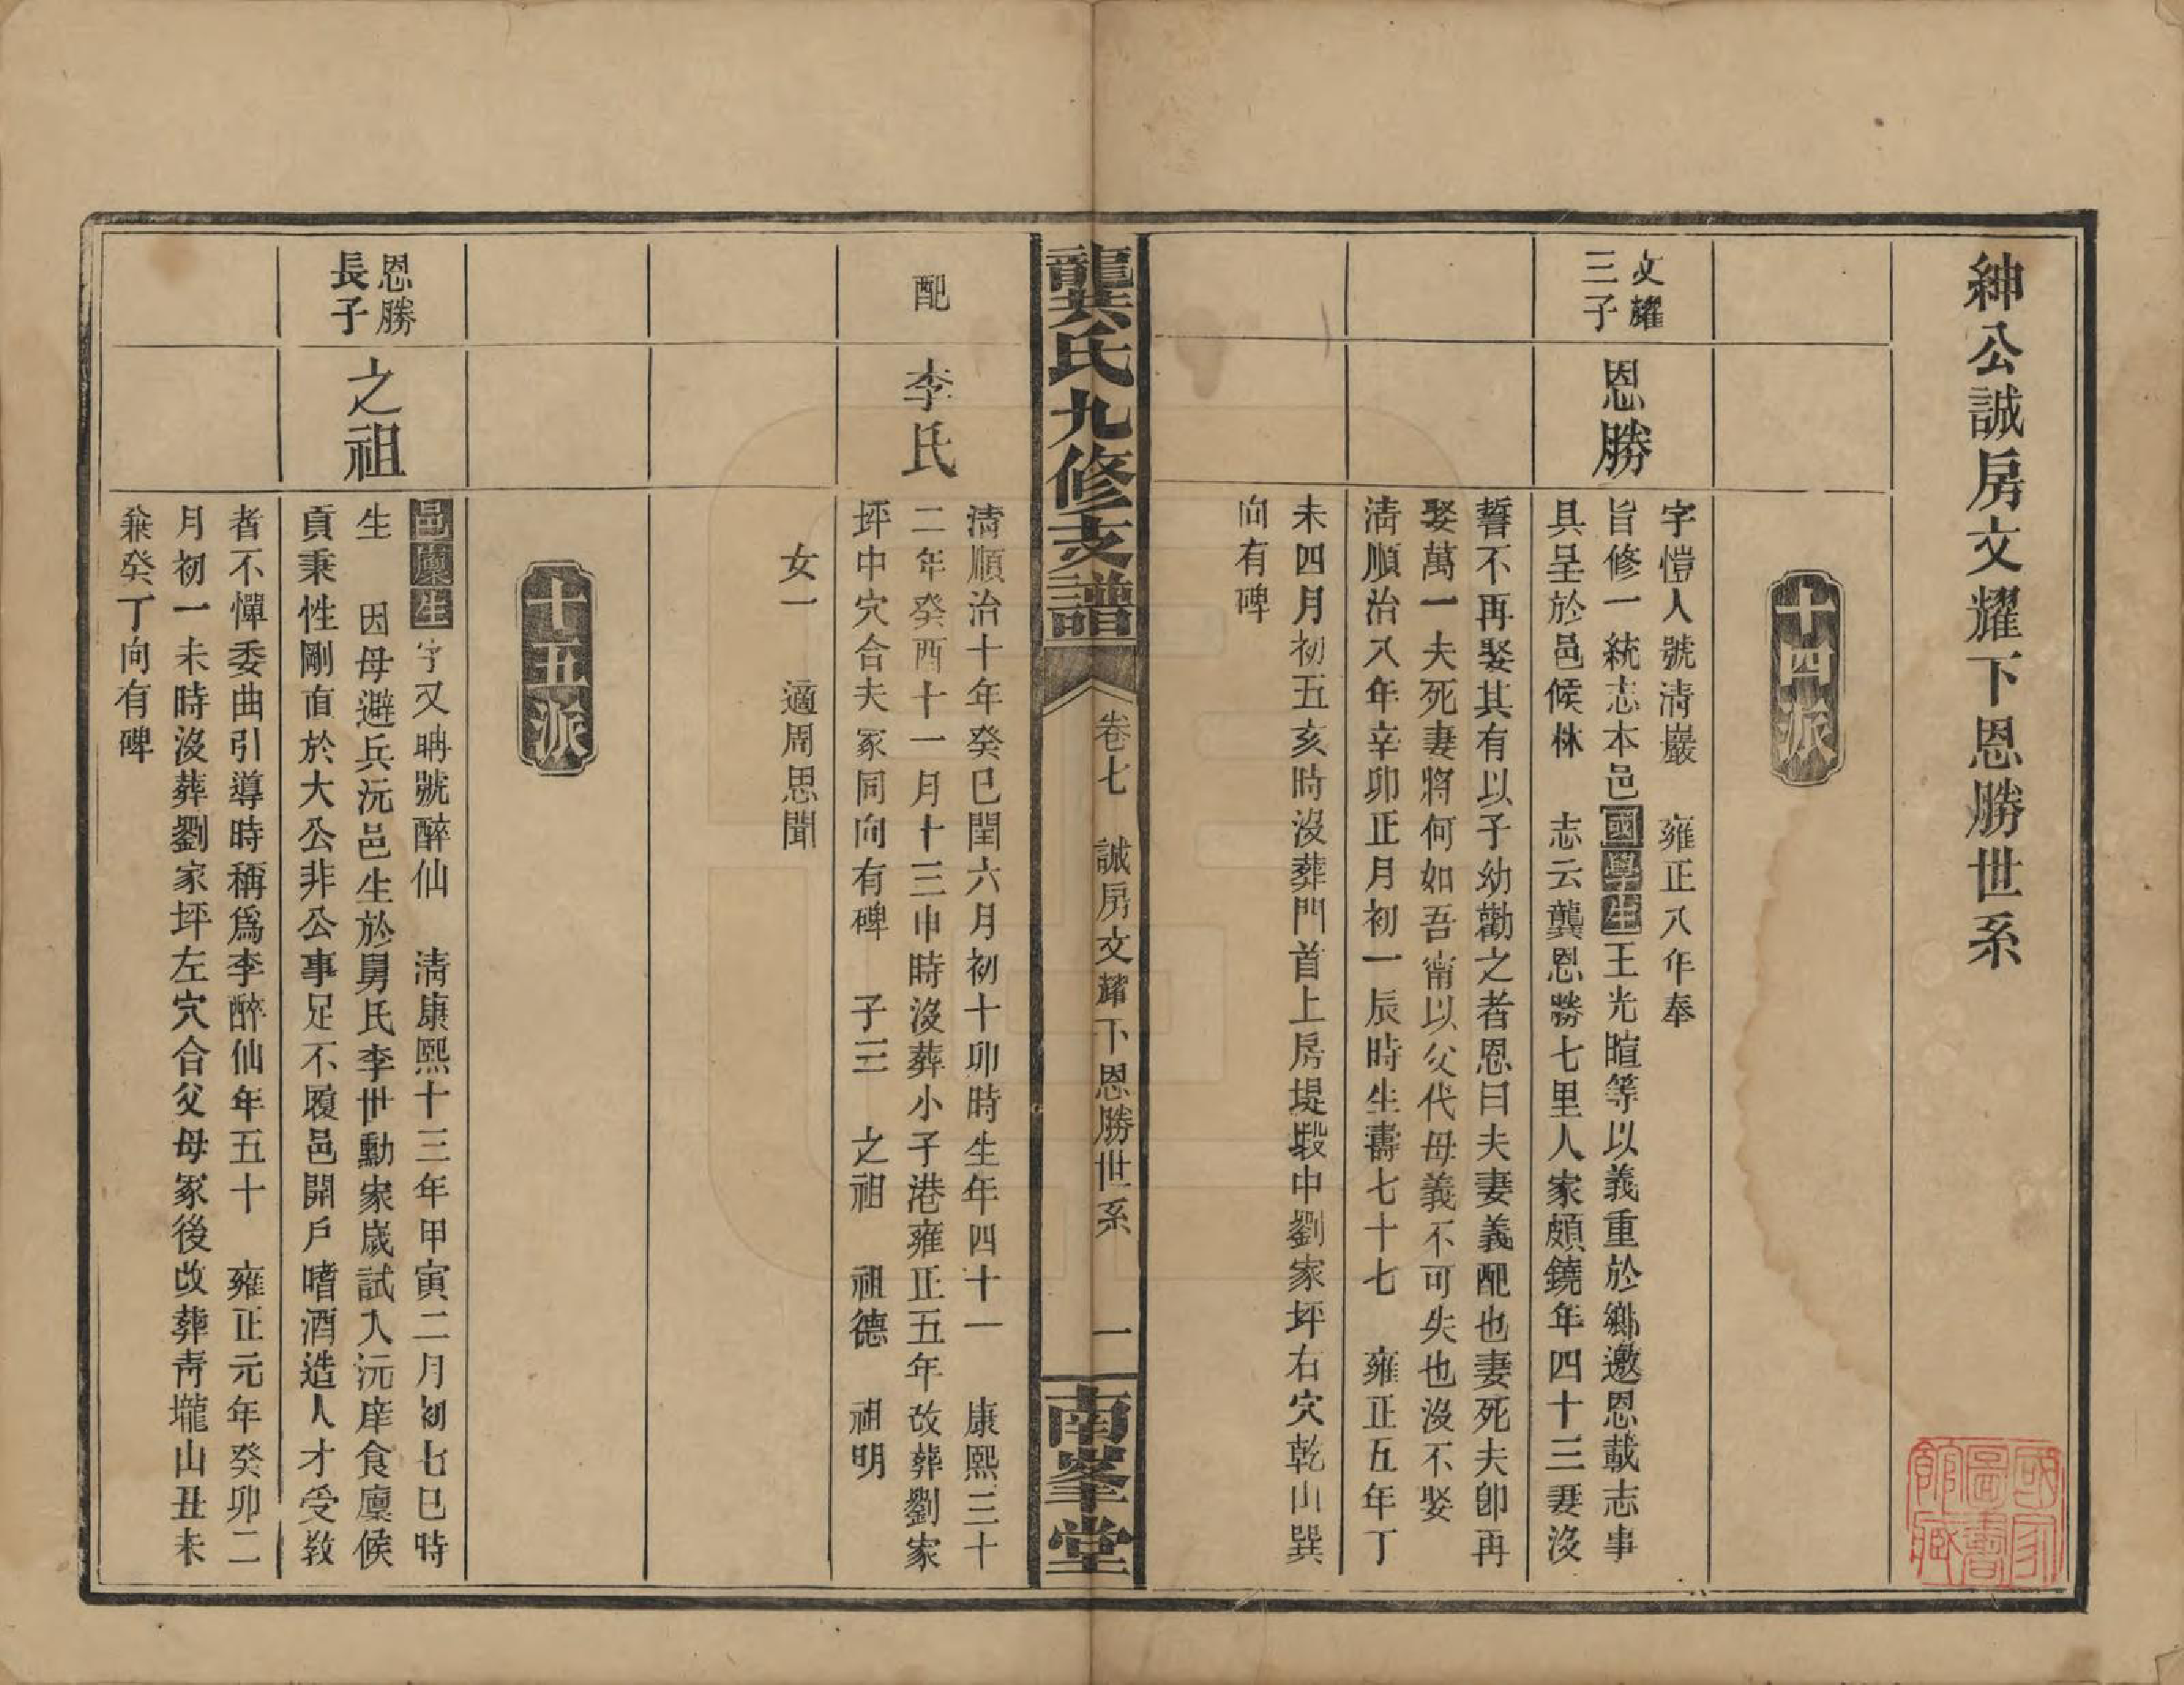 紳公誠房文耀下恩勝世系
十四派
文耀
三子
恩勝
字愷人號清巖　雍正八年奉
旨修一統志本邑國學生王光暄等以義重於鄉邀恩載志事
具呈於邑候林　志云龔恩勝七里人家頗鐃年四十三妻沒
誓不再娶其有以子幼勸之者恩曰夫妻義配也妻死夫卽再
娶萬一夫死妻將何如吾甯以父代母義不可失也沒不娶
清順治八年辛卯正月初一辰時生壽七十七　雍正五年丁
未四月初五亥時沒葬門首上房堤塅中劉家坪右穴乾山巽
向有碑
龔氏九修支譜
卷七　誠房文耀下恩勝世系　一
南峯堂
配
李氏
清順治十年癸巳閏六月初十卯時生年四十一　康熙三十
二年癸酉十一月十三申時沒葬小子港雍正五年改葬劉家
坪中穴合夫冢同向有碑　子三　之祖　祖德　祖明
女一　適周思聞
十五派
恩勝
長子
之祖
邑廩生字又聃號醉仙　清康熙十三年甲寅二月初七巳時
生　因母避兵沅邑生於舅氏李世勳家歲試入沅庠食廩候
貢秉性剛直於大公非公事足不履邑閉戶嗜酒造人才受敎
者不憚委曲引導時稱爲李醉仙年五十　雍正元年癸卯二
月初一未時沒葬劉家坪左穴合父母冢後改葬靑壠山丑未
兼癸丁向有碑
國家圖書館藏